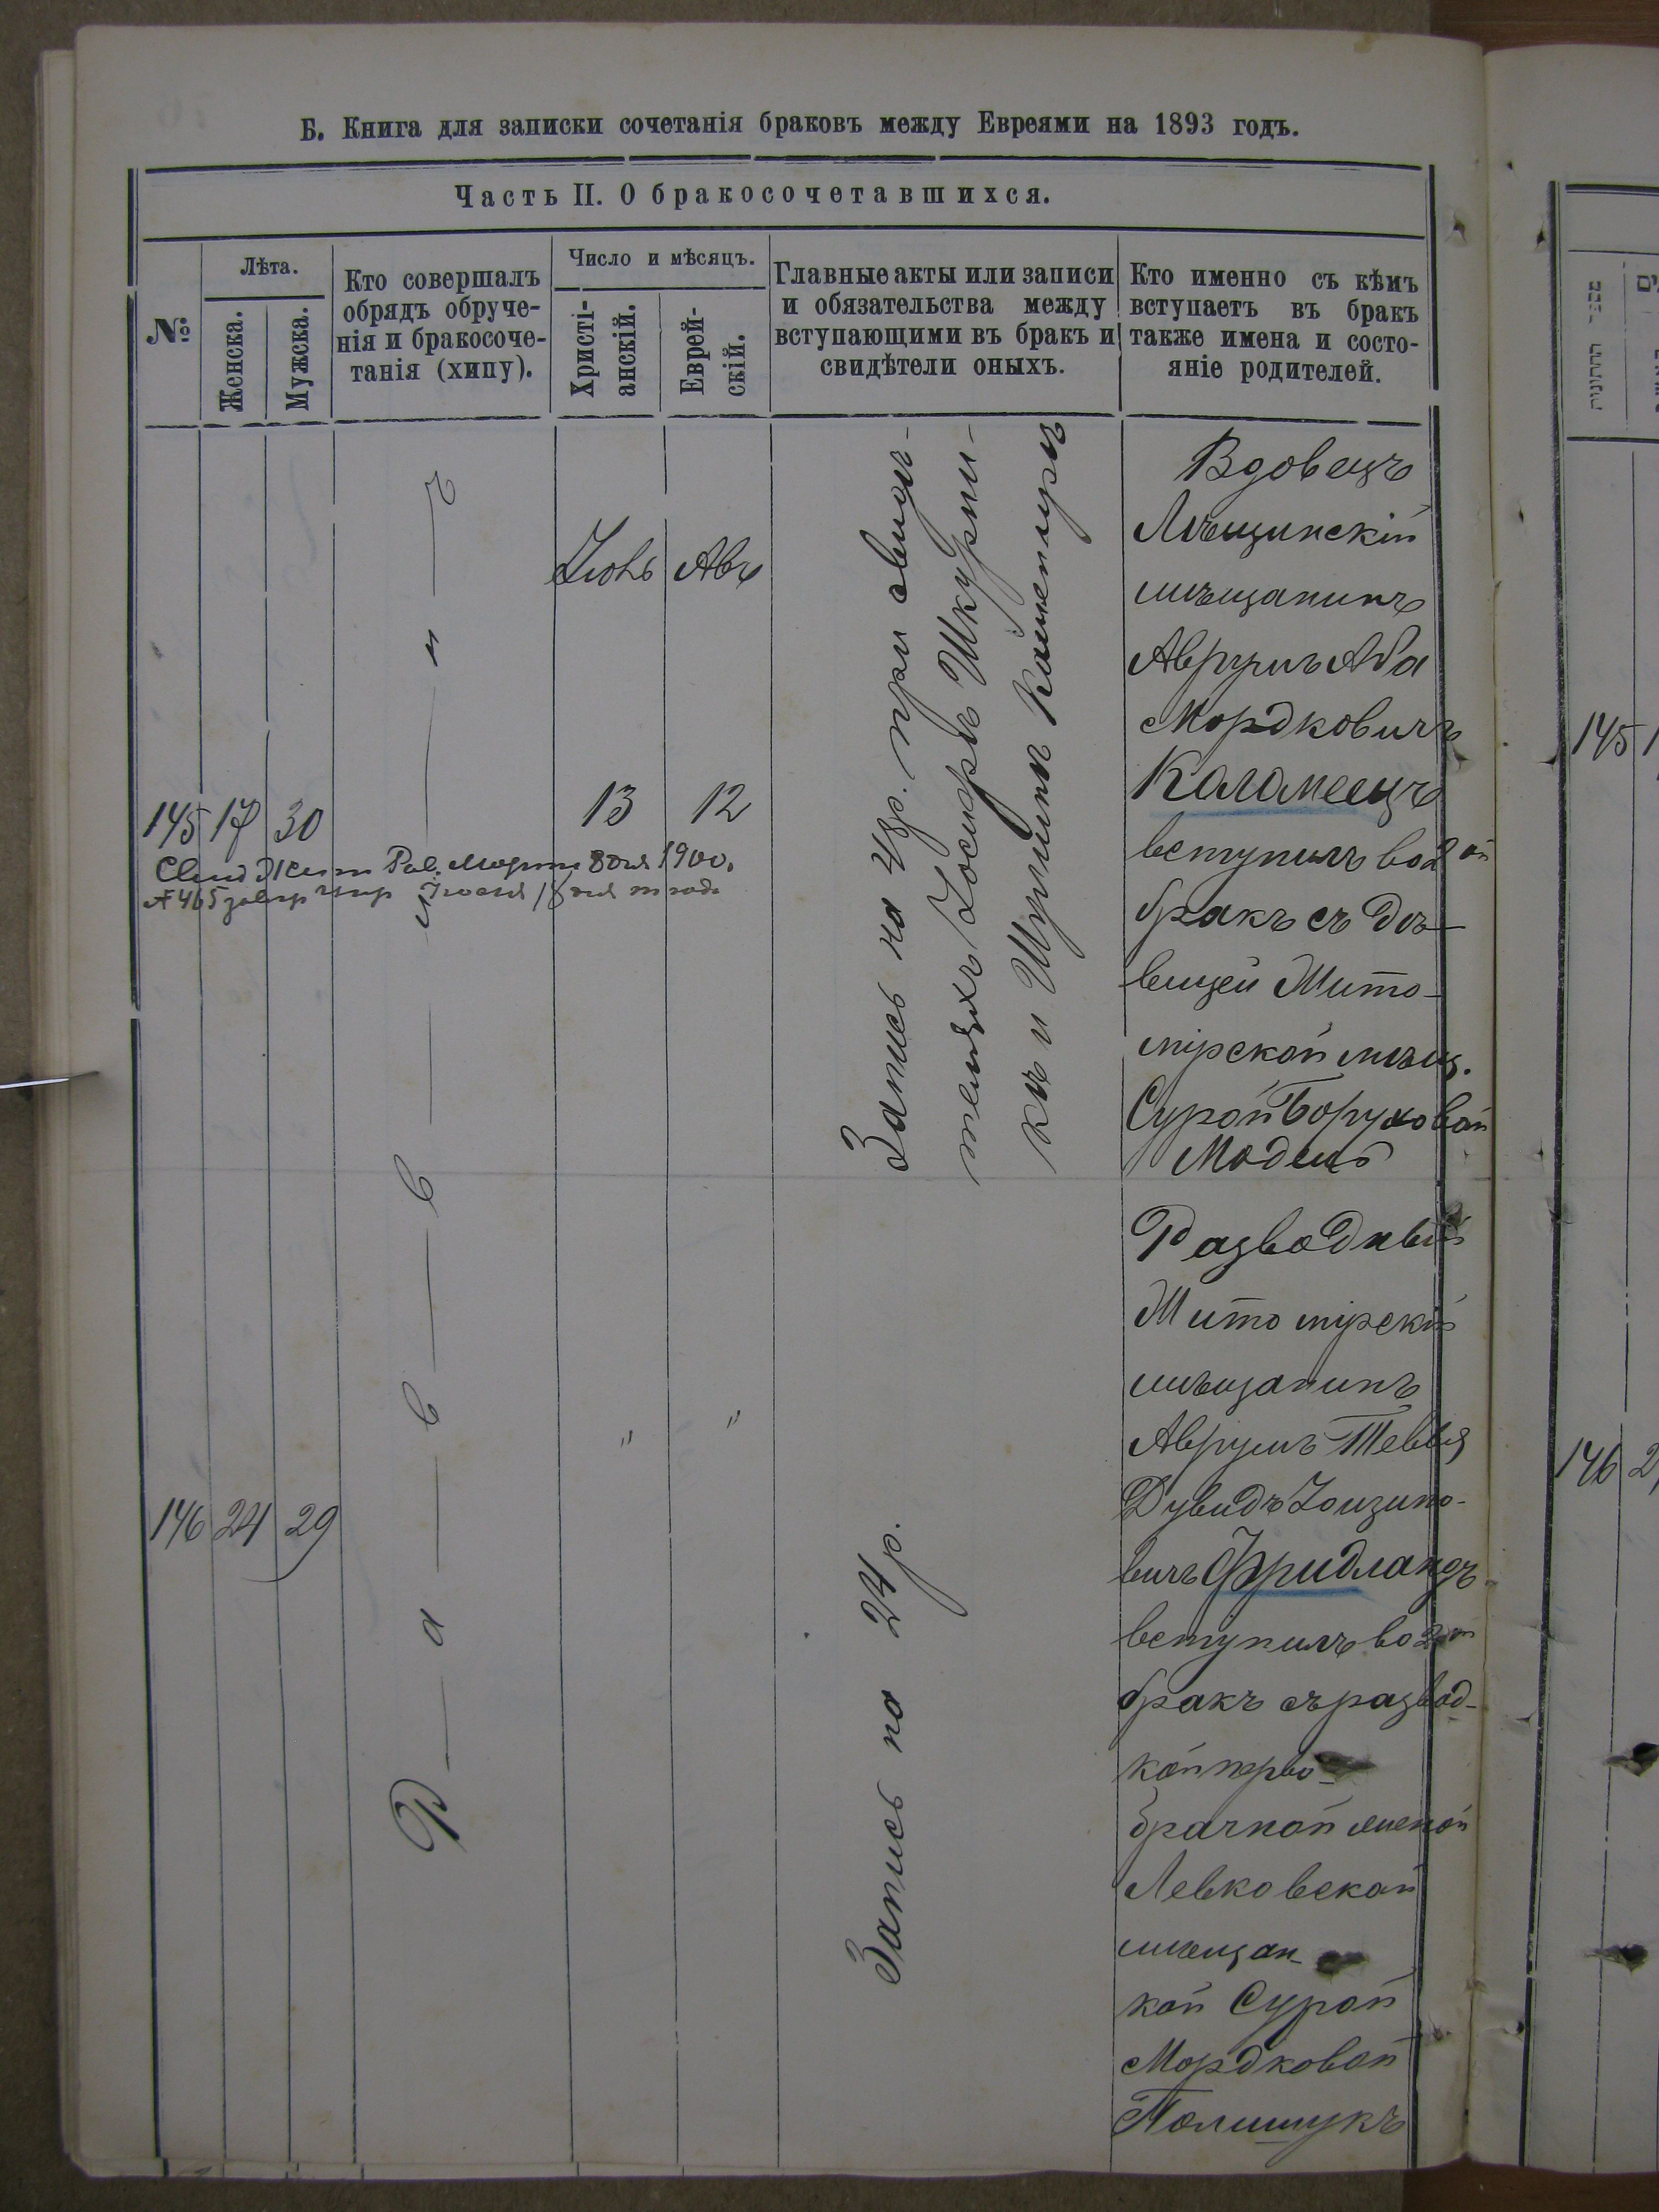 Б. Книга для записки сочетанія браковъ между Евреями на 1893 годъ.
Часть II. О бракосочетавшихся.
№
Лѣта.
Женска.
Мужска.
Кто совершалъ
обрядъ обруче-
нія и бракосоче-
танія (хипу).
Число и мѣсяцъ.
Христі-
анскій.
Еврей-
скій.
Главные акты или записи
и обязательства между
вступающими въ бракъ и
свидѣтели оныхъ.
Кто именно съ кѣмъ
вступаетъ въ бракъ
также имена и состо-
яніе родителей.
145 17 30
Іюль
13
Авъ
12
Запись на 48р. при свидѣ-
теляхъ
и Шулимъ
Вдовецъ
мѣщанинъ
Аврумъ Аба
Мордковичъ
вступилъ во 2ой
бракъ съ Дѣ-
вицей Жито-
мірской мѣщ.
Сурой Боруховой
Модель
146 24 29
" "
Раввинъ
Запись на 24р.
Разводный
Житомірскій
мѣщанинъ
Аврумъ Тевья
Дувидъ
вичъ Фридландъ
вступилъ во 2ой
бракъ съ развод-
кой перво-
брачной женой
Левковской
мѣщан-
кой Сурой
Мордковой
Полищукъ
145 1
146 2